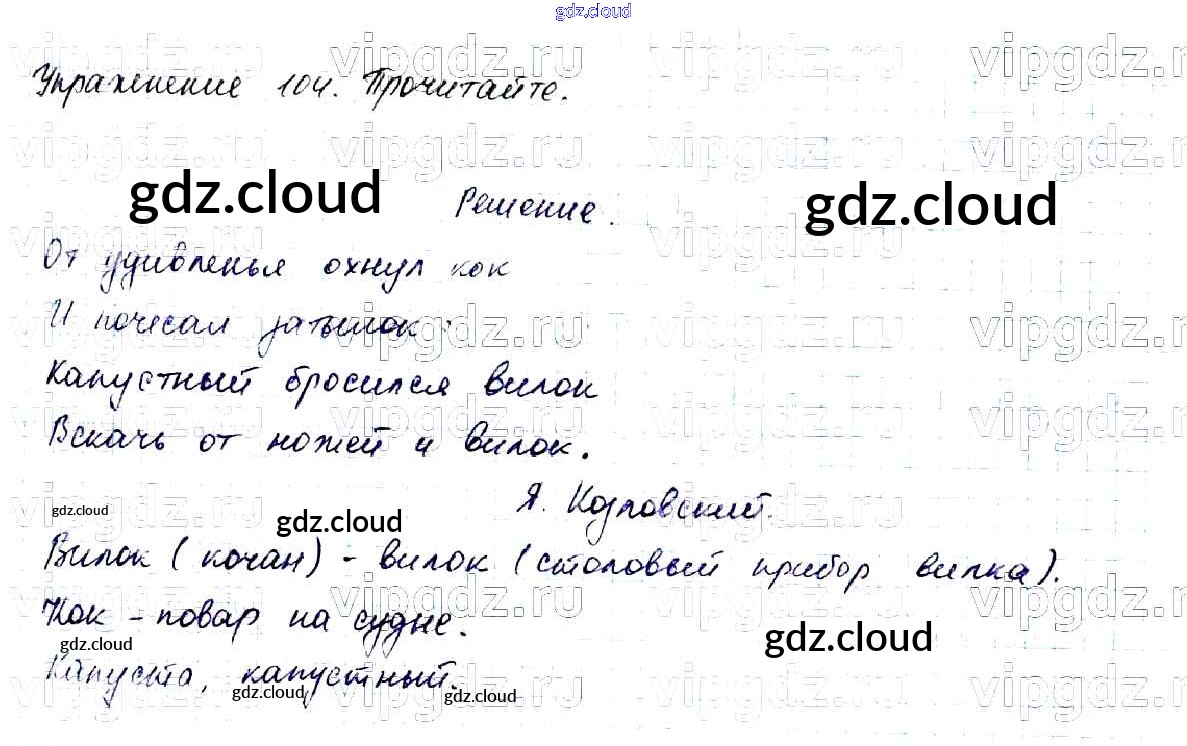 gdz.cloud
Упражнение 104. Прочитайте.
Решение.
От удивленья охнул кок
И почесал затылок:
Капустный бросился вилок
Вскачь от ножей и вилок.
Я. Козловский.
Вилок (кочан) - вилок (столовый прибор вилка).
Кок - повар на судне.
Капуста, капустный.
gdz.cloud gdz.cloud
gdz.cloud gdz.cloud
gdz.cloud gdz.cloud
gdz.cloud gdz.cloud
vipgdz.ru vipgdz.ru vipgdz.ru vipgdz.ru